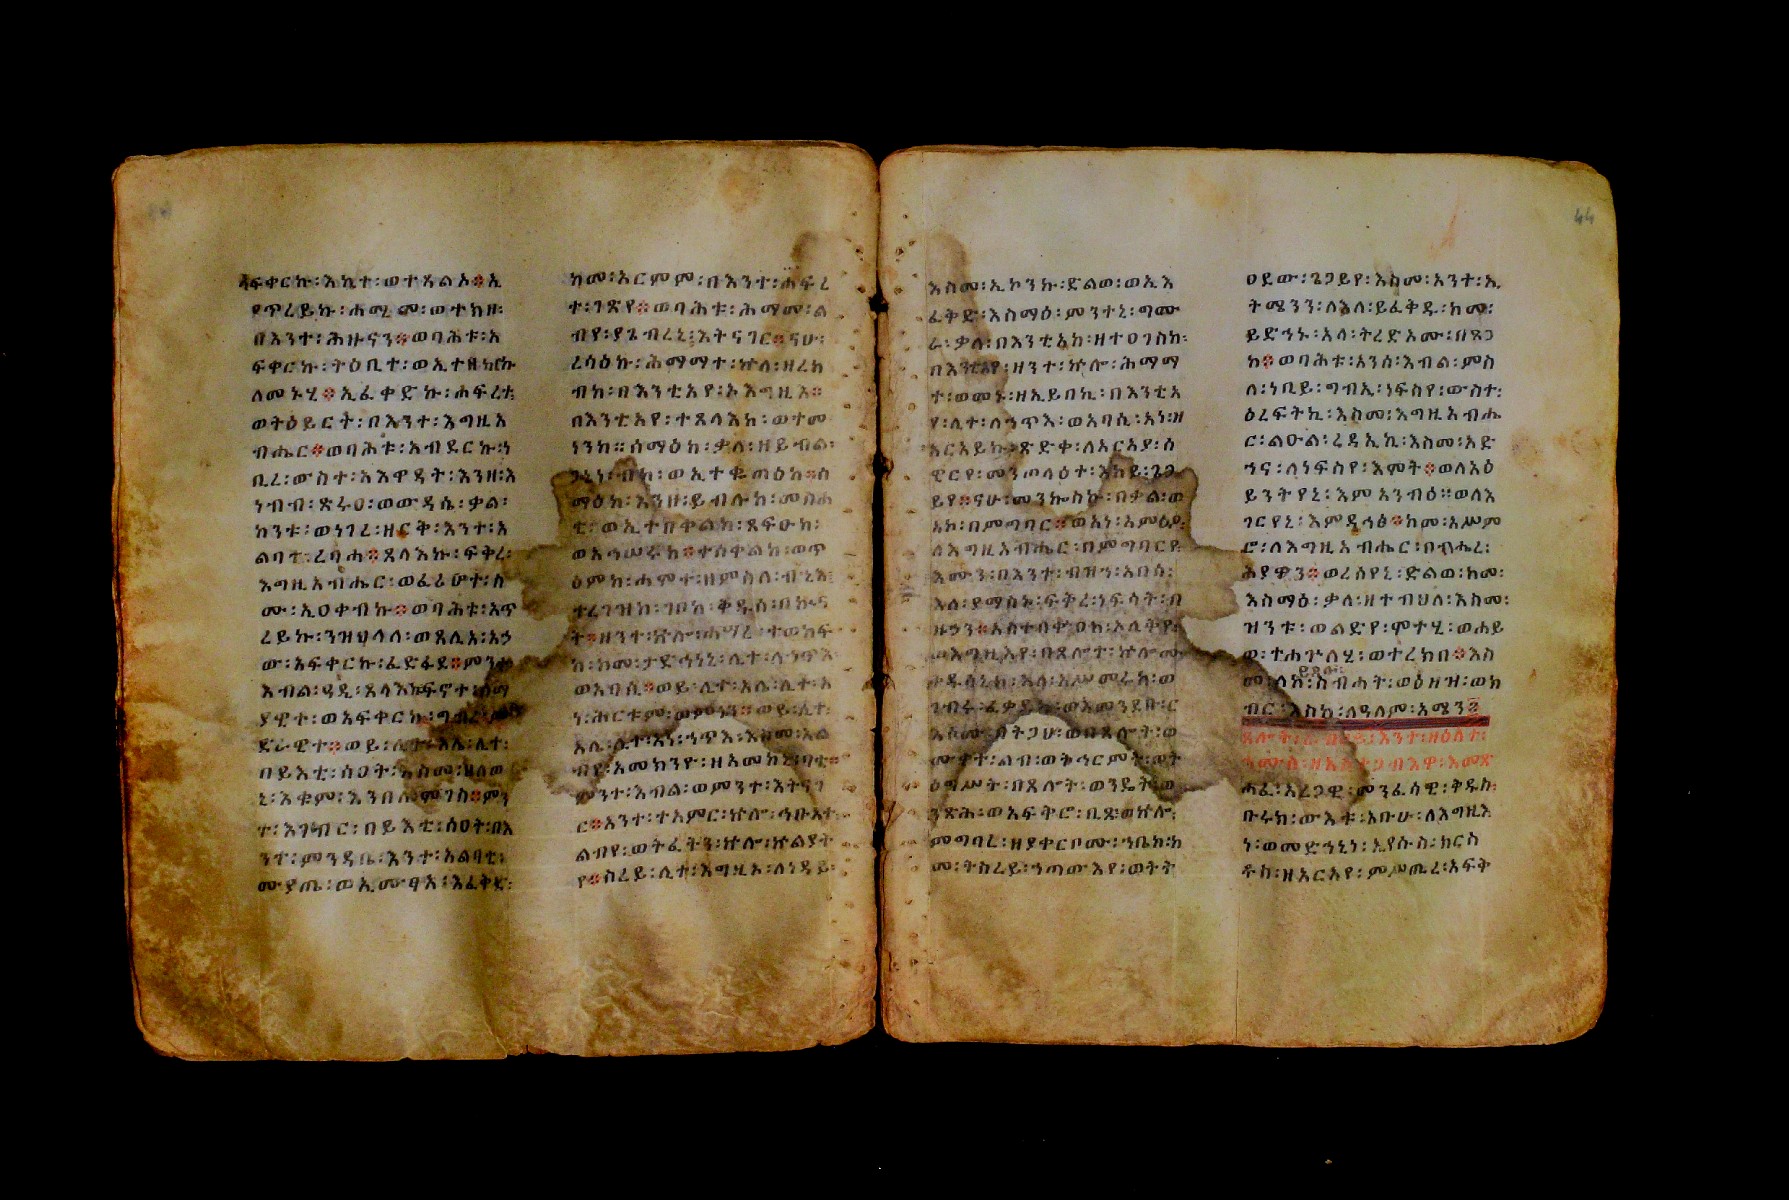 አፍቀርኩ፡እኪተ፡ወተጸልአ፨ኢ
የጥረይኩ፡ሐሚመ፡ወተከዘ፡
በእንተ፡ሕዙናን፨ወባሕቱ፡አ
ፍቀርኩ፡ትዕቢተ፡ወኢተዘከርኩ
ለመኑሂ፨ኢፈቀድኩ፡ሐፍረተ፡
ወትዕይርት፡በእንተ፡እግዚአ
ብሔር፨ወባሕቱ፡አብደርኩ፡ኀ
ቢረ፡ውስተ፡አእዋዳት፡እንዘ፡እ
ነብብ፡ጽሩዐ፡ወውዳሴ፡ቃል፡
ከንቱ፡ወነገረ፡ዘርቅ፡እንተ፡አ
ልባቲ፡ረባሐ፨ጸላእኩ፡ፍቅረ፡
እግዚአብሔር፡ወፈሪሆተ፡ስ
ሙ፡ኢዐቀብኩ፨ወባሕቱ፡አጥ
ረይኩ፡ንዝህላለ፡ወጸሊአ፡እኅ
ው፡አፍቀርኩ፡ፈድፋደ፨ምንተ
እብል፡ዓዲ፡ጸላእኩ፡
ያዊተ፡ወአፍቀርኩ፡ግብረ፡
ድራዊተ፨ወይ፡ሊተ፡አሌ፡ሊተ፡
በይእቲ፡ሰዐት፡እስመ፡ሀለወ
ኒ፡እቁም፡እንበለ፡ሞገስ፨ምን
ተ፡እገብር፡በይእቲ፡ሰዐት፡በእ
ንተ፡ምንዳቤ፡እንተ፡አልባቲ፡
ሙያጤ፡ወኢሙፃአ፡እፈቅድ፡
ከመ፡አርምም፡በእንተ፡ሐፍረ
ተ፡ገጽየ፨ወባሕቱ፡ሕማመ፡ል
ብየ፡ያጌብረኒ፡እትናገር፨ናሁ፡
ረሳዕኩ፡ሕማማተ፡ኵሉ፡ዘረከ
ብከ፡በእንቲአየ፡ኦእግዚእ፨
በእንቲአየ፡ተጸላእከ፡ወተመ
ነንከ፨ሰማዕከ፡ቃለ፡ዘይብል፡
ጋኔነ፡ብከ፡ወኢተቈጣዕከ፨ስ
ማዕከ፡እንዘ፡ይብሉከ፡መስሐ
ቲ፡ወኢተበቀልከ፡ጸፍዑከ፡
ወአኅሠሩከ፨ተሰቀልከ፡ወጥ
ዕምከ፡ሐሞተ፡ዘምስለ፡ብኂእ፡
ተረገዝከ፡ገቦከ፡ቅዱሰ፡በኲና
ት፨ዘንተ፡ኵሎ፡
ከ፡ከመ፡ታድኅነኒ፡ሊተ፡ለኃጥእ
ወአባሲ፨ወይ፡ሊተ፡አሌ፡ሊተ፡አ
ነ፡ሕርቱም፡ወምኑን፨ወይ፡ሊተ፡
አሌ፡ሊተ፡አነ፡ኃጥእ፡እስመ፡አል
ብየ፡አመክንዮ፡ዘአመክኒ፡ባቲ፨
ምንተ፡እብል፡ወምንተ፡እትናገ
ር፨አንተ፡ተአምር፡ኵሎ፡ኅቡአተ
ልብየ፡ወትፈትን፡ኵሎ፡ኵልያት
የ፨ስረይ፡ሊተ፡እግዚእ፡ለነዳይ፡
እስመ፡ኢኮንኩ፡ድልወ፡ወኢእ
ፈቅድ፡እስማዕ፡ምንተኒ፡ግሙ
ራ፡ቃለ፡በእንቲአከ፡ዘተዐገስከ፡
በእንቲአየ፡ዘንተ፡ኵሎ፡ሕማማ
ተ፡ወመኑ፡ዘኢይበኪ፡በእንቲአ
የ፡ሊተ፡ለኃጥእ፡ወአባሲ፡አነ፡ዘ
አርአይኩ፡ጽድቀ፡ለአርአያ፡ስ
ዊርየ፡መንጦላዕተ፡እከይ፡ጌጋ
ይየ፨ናሁ፡መንኰስኩ፡በቃል፡ወ
አኮ፡በምግባር፨ወአነ፡
ለእግዚአብሔር፡በምግባርየ
እሙን፡በእንተ፡ብዝኀ፡አበሳ፡
እለ፡ያማስኑ፡ፍቅረ፡ነፍሳት፡በ
ዙኃን፨አስተበቍዐከ፡
ወእግዚእየ፡በጸሎተ፡ኵሎሙ
ቅዱሳኒከ፡እለ፡አሥመሩከ፡ወ
ገብሩ፡ፈቃደከ፡
እስመ፡በትጋህ፡ወበጸሎት፡ወ
ሙቀተ፡ልብ፡ወቅኅርምት፡ወት
ዕግሥት፡በጸሎት፡ወንዴት፡ወ
ንጽሕ፡ወአፍቅሮ፡ቢጽ፡ወኵሎ፡
ምግባረ፡ዘያቀርቦሙ፡ኀቤከ፡ከ
መ፡ትስረይ፡ኀጣውእየ፡ወትት
ዐደው፡ጌጋይየ፡እስመ፡አንተ፡ኢ
ትሜንን፡ለእለ፡ይፈቅዱ፡ከመ፡
ይድኅኑ፡አላ፡ትረድኦሙ፡በጸጋ
ከ፨ወባሕቱ፡አንሰ፡እብል፡ምስ
ለ፡ነቢይ፡ግብኢ፡ነፍስየ፡ውስተ፡
ዕረፍትኪ፡እስመ፡እግዚአብሔ
ር፡ልዑል፡ረዳኢኪ፡እስመ፡አድ
ኀና፡ለነፍስየ፡እምት፨ወለአዕ
ይንትየኒ፡እምአንብዕ፨ወለእ
ገርየኒ፡እምዳኅፅ፨ከመ፡አሥም
ሮ፡ለእግዚአብሔር፡በብሔረ፡
ሕያዋን፨ወረሰየኒ፡ድልወ፡ከመ፡
እስማዕ፡ቃለ፡ዘተብህለ፡እስመ፡
ዝንቱ፡ወልድየ፡ሞተሂ፡ወሐይ
ወ፡ተሐጕለሂ፡ወተረክበ፨እስ
መ፡ለከ፡ስብሓት፡ወዕዘዝ፡ወክ
ብር፡እስከ፡ለዓለም፡አሜን፨
ሐፈ፡አረጋዊ፡መንፈሳዊ፡ቅዱስ፡
ቡሩክ፡ውእቱ፡አቡሁ፡ለእግዚእ
ነ፡ወመድኀኒነ፡ኢየሱስ፡ክርስ
ቶስ፡ዘአርአየ፡ምሥጢረ፡አፍቅ
44